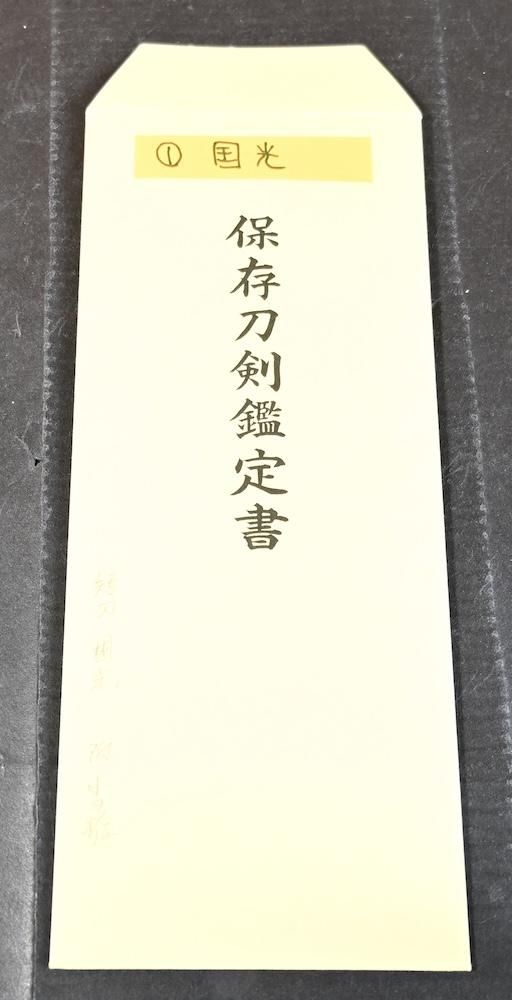 ① 国光
保存刀剣鑑定書
短刀 国光